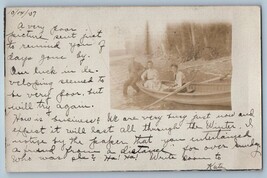 9/14/07
A very poor
picture sent just
to remind you of
days gone by.
Our luck in de-
veloping seemed to
be very poor, but
will try again.
How is business? We are very busy just now and
expect it will last all through the Winter. I
notice by the paper that you entertained
"a friend from a distance" for over Sunday
who was she? Ha! Ha! Write soon to